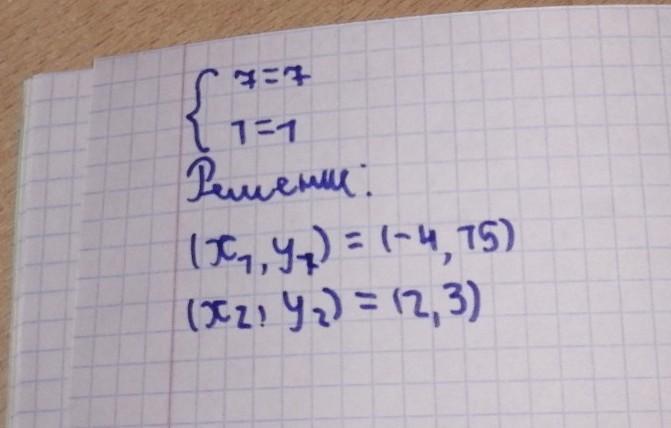 { 7=7
1=1
Решение:
(x₁, y₁) = (-4, 15)
(x₂, y₂) = (2, 3)